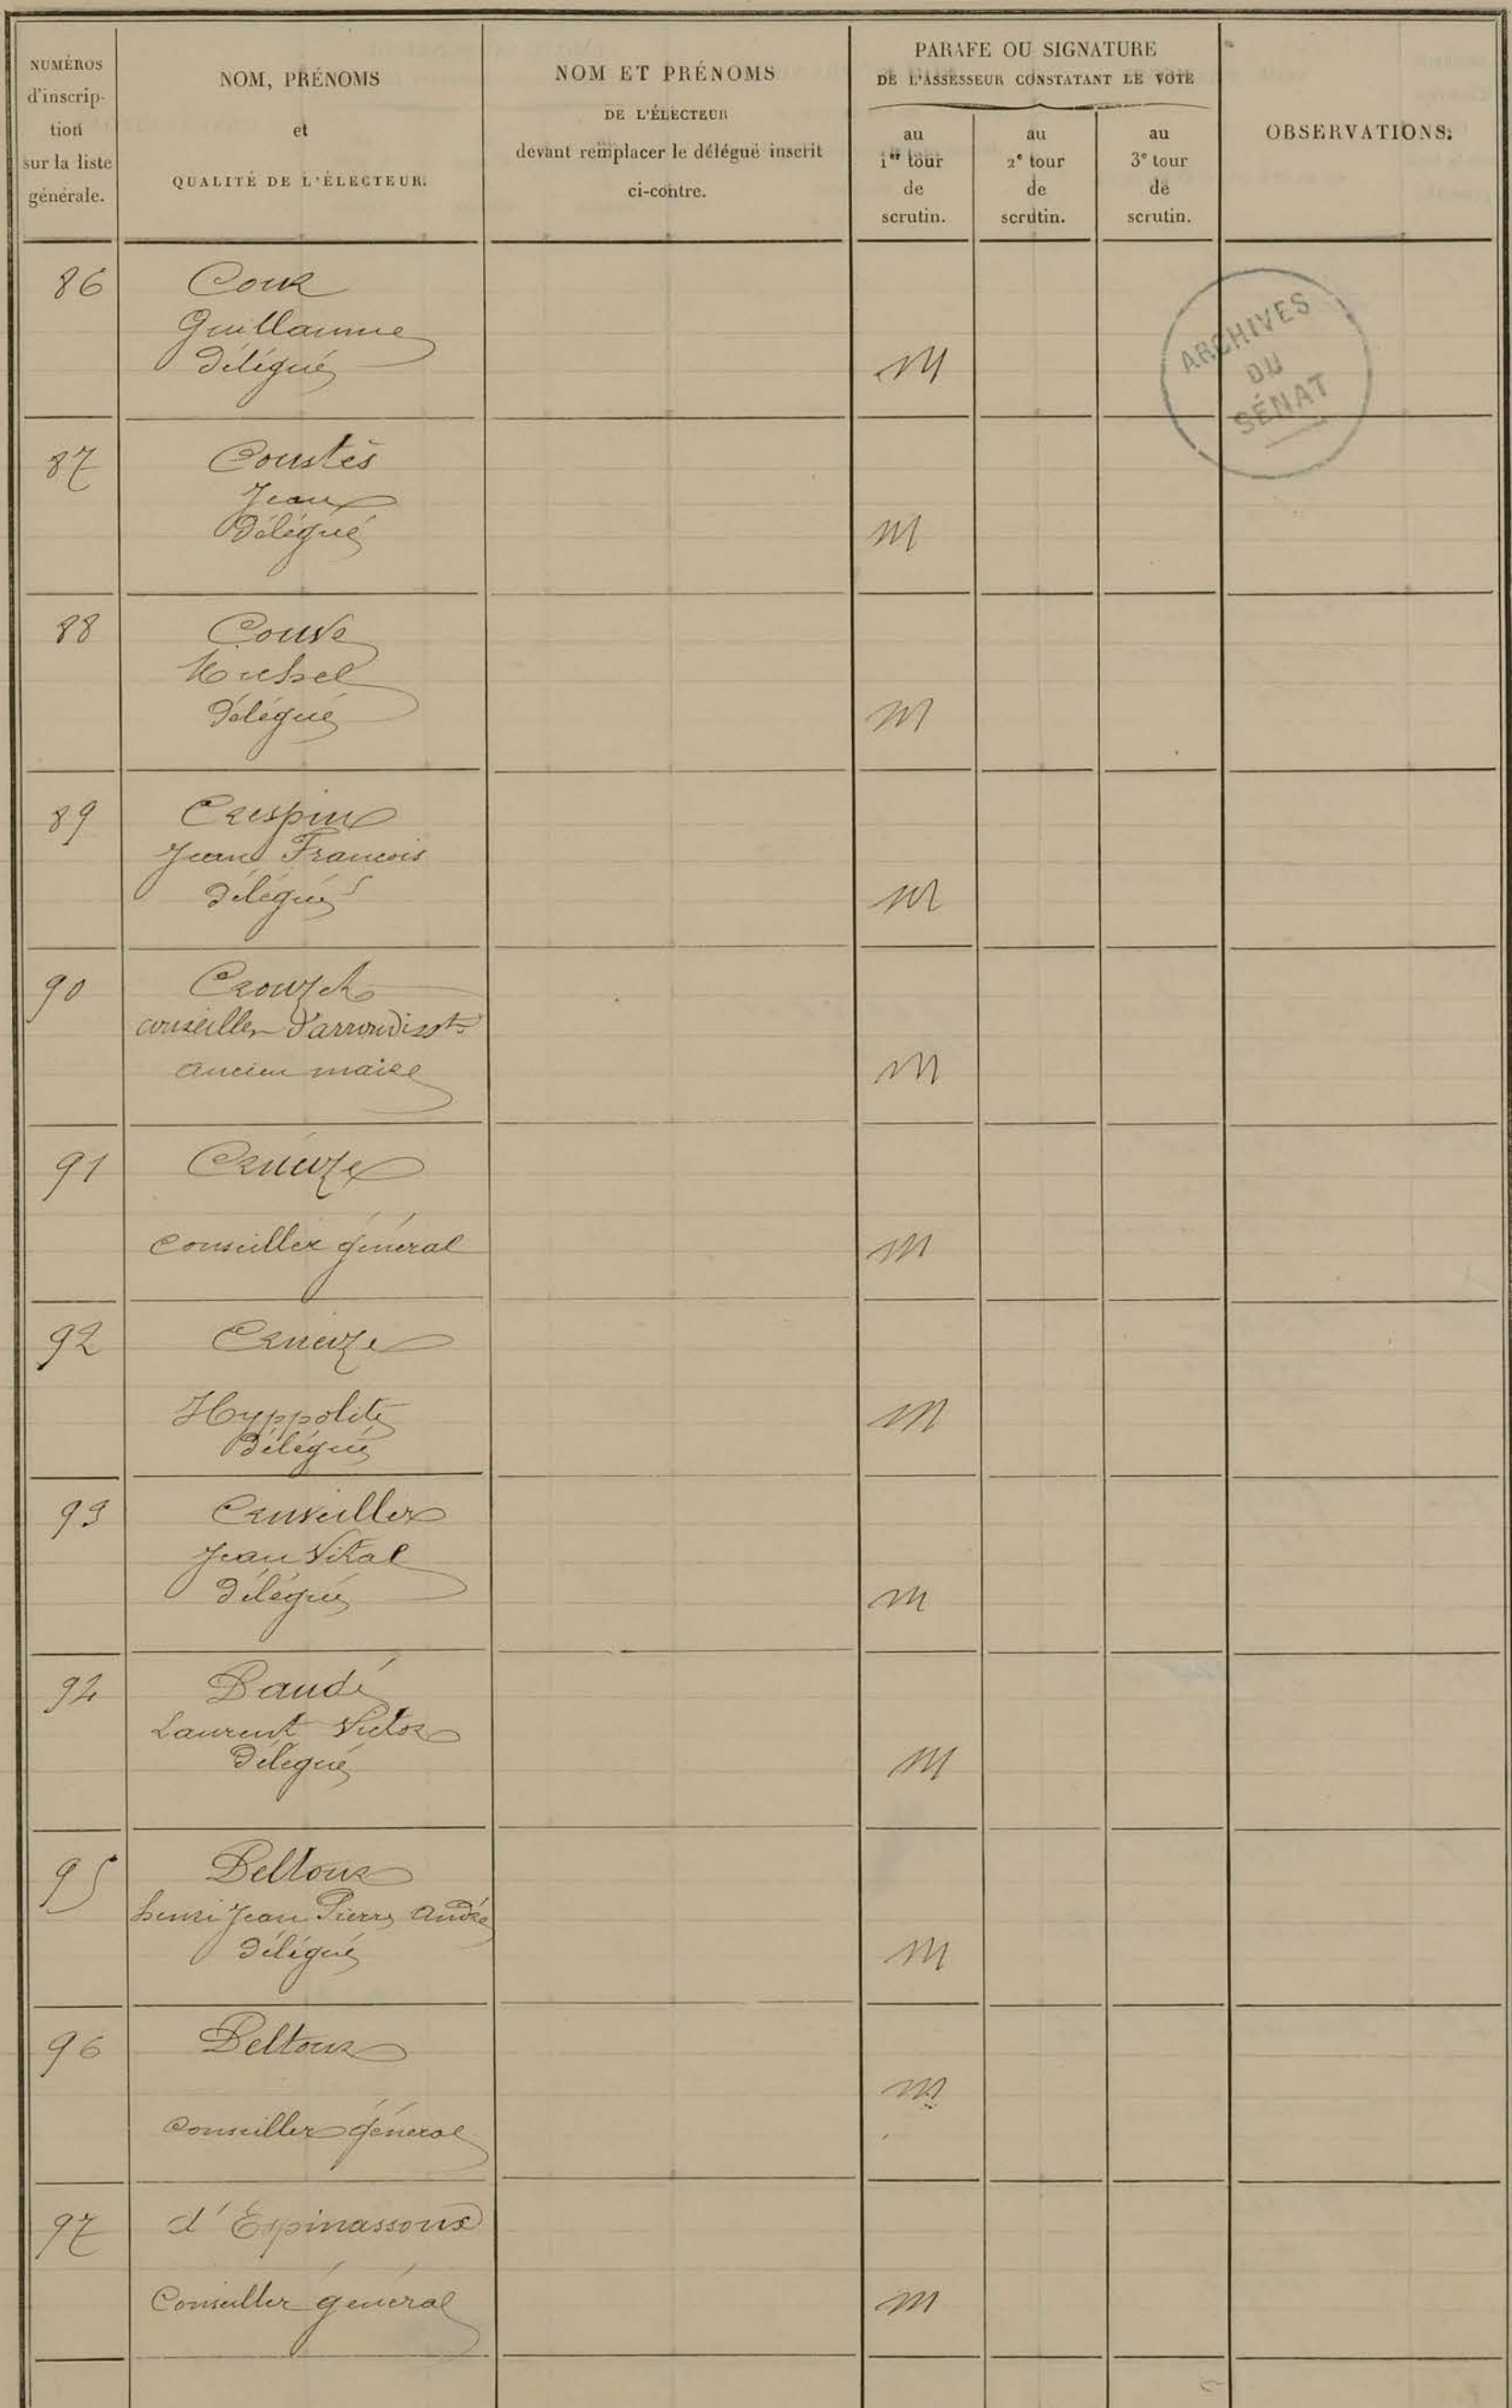 NUMÉROS
d'inscrip-
tion
sur la liste
générale.
NOM, PRÉNOMS
et
QUALITÉ DE L'ÉLECTEUR.
NOM ET PRÉNOMS
DE L'ÉLECTEUR
devant remplacer le délégué inscrit
ci-contre.
PARAFE OU SIGNATURE
DE L'ASSESSEUR CONSTATANT LE VOTE
au
1er tour
de
scrutin.
au
2e tour
de
scrutin.
au
3e tour
de
scrutin.
OBSERVATIONS.
ARCHIVES
DU
SÉNAT
86 Cour
Guillaume
Délégué M
87 Coustès
Jean
Délégué M
88 Couve
Michel
Délégué M
89 Crespin
Jean François
Délégué M
90 Crouzet
conseiller d'arrondisst
ancien maire M
91 Crueize
Conseiller général M
92 Crueize
Hyppolite M
Délégué
93 Cruveiller
Jean Vital
Délégué M
94 Daudé
Laurent Victor
Délégué M
95 Deltour
henri Jean Pierre André
Délégué M
96 Deltour
M
Conseiller général
97 d'Espinassoux
Conseiller général M